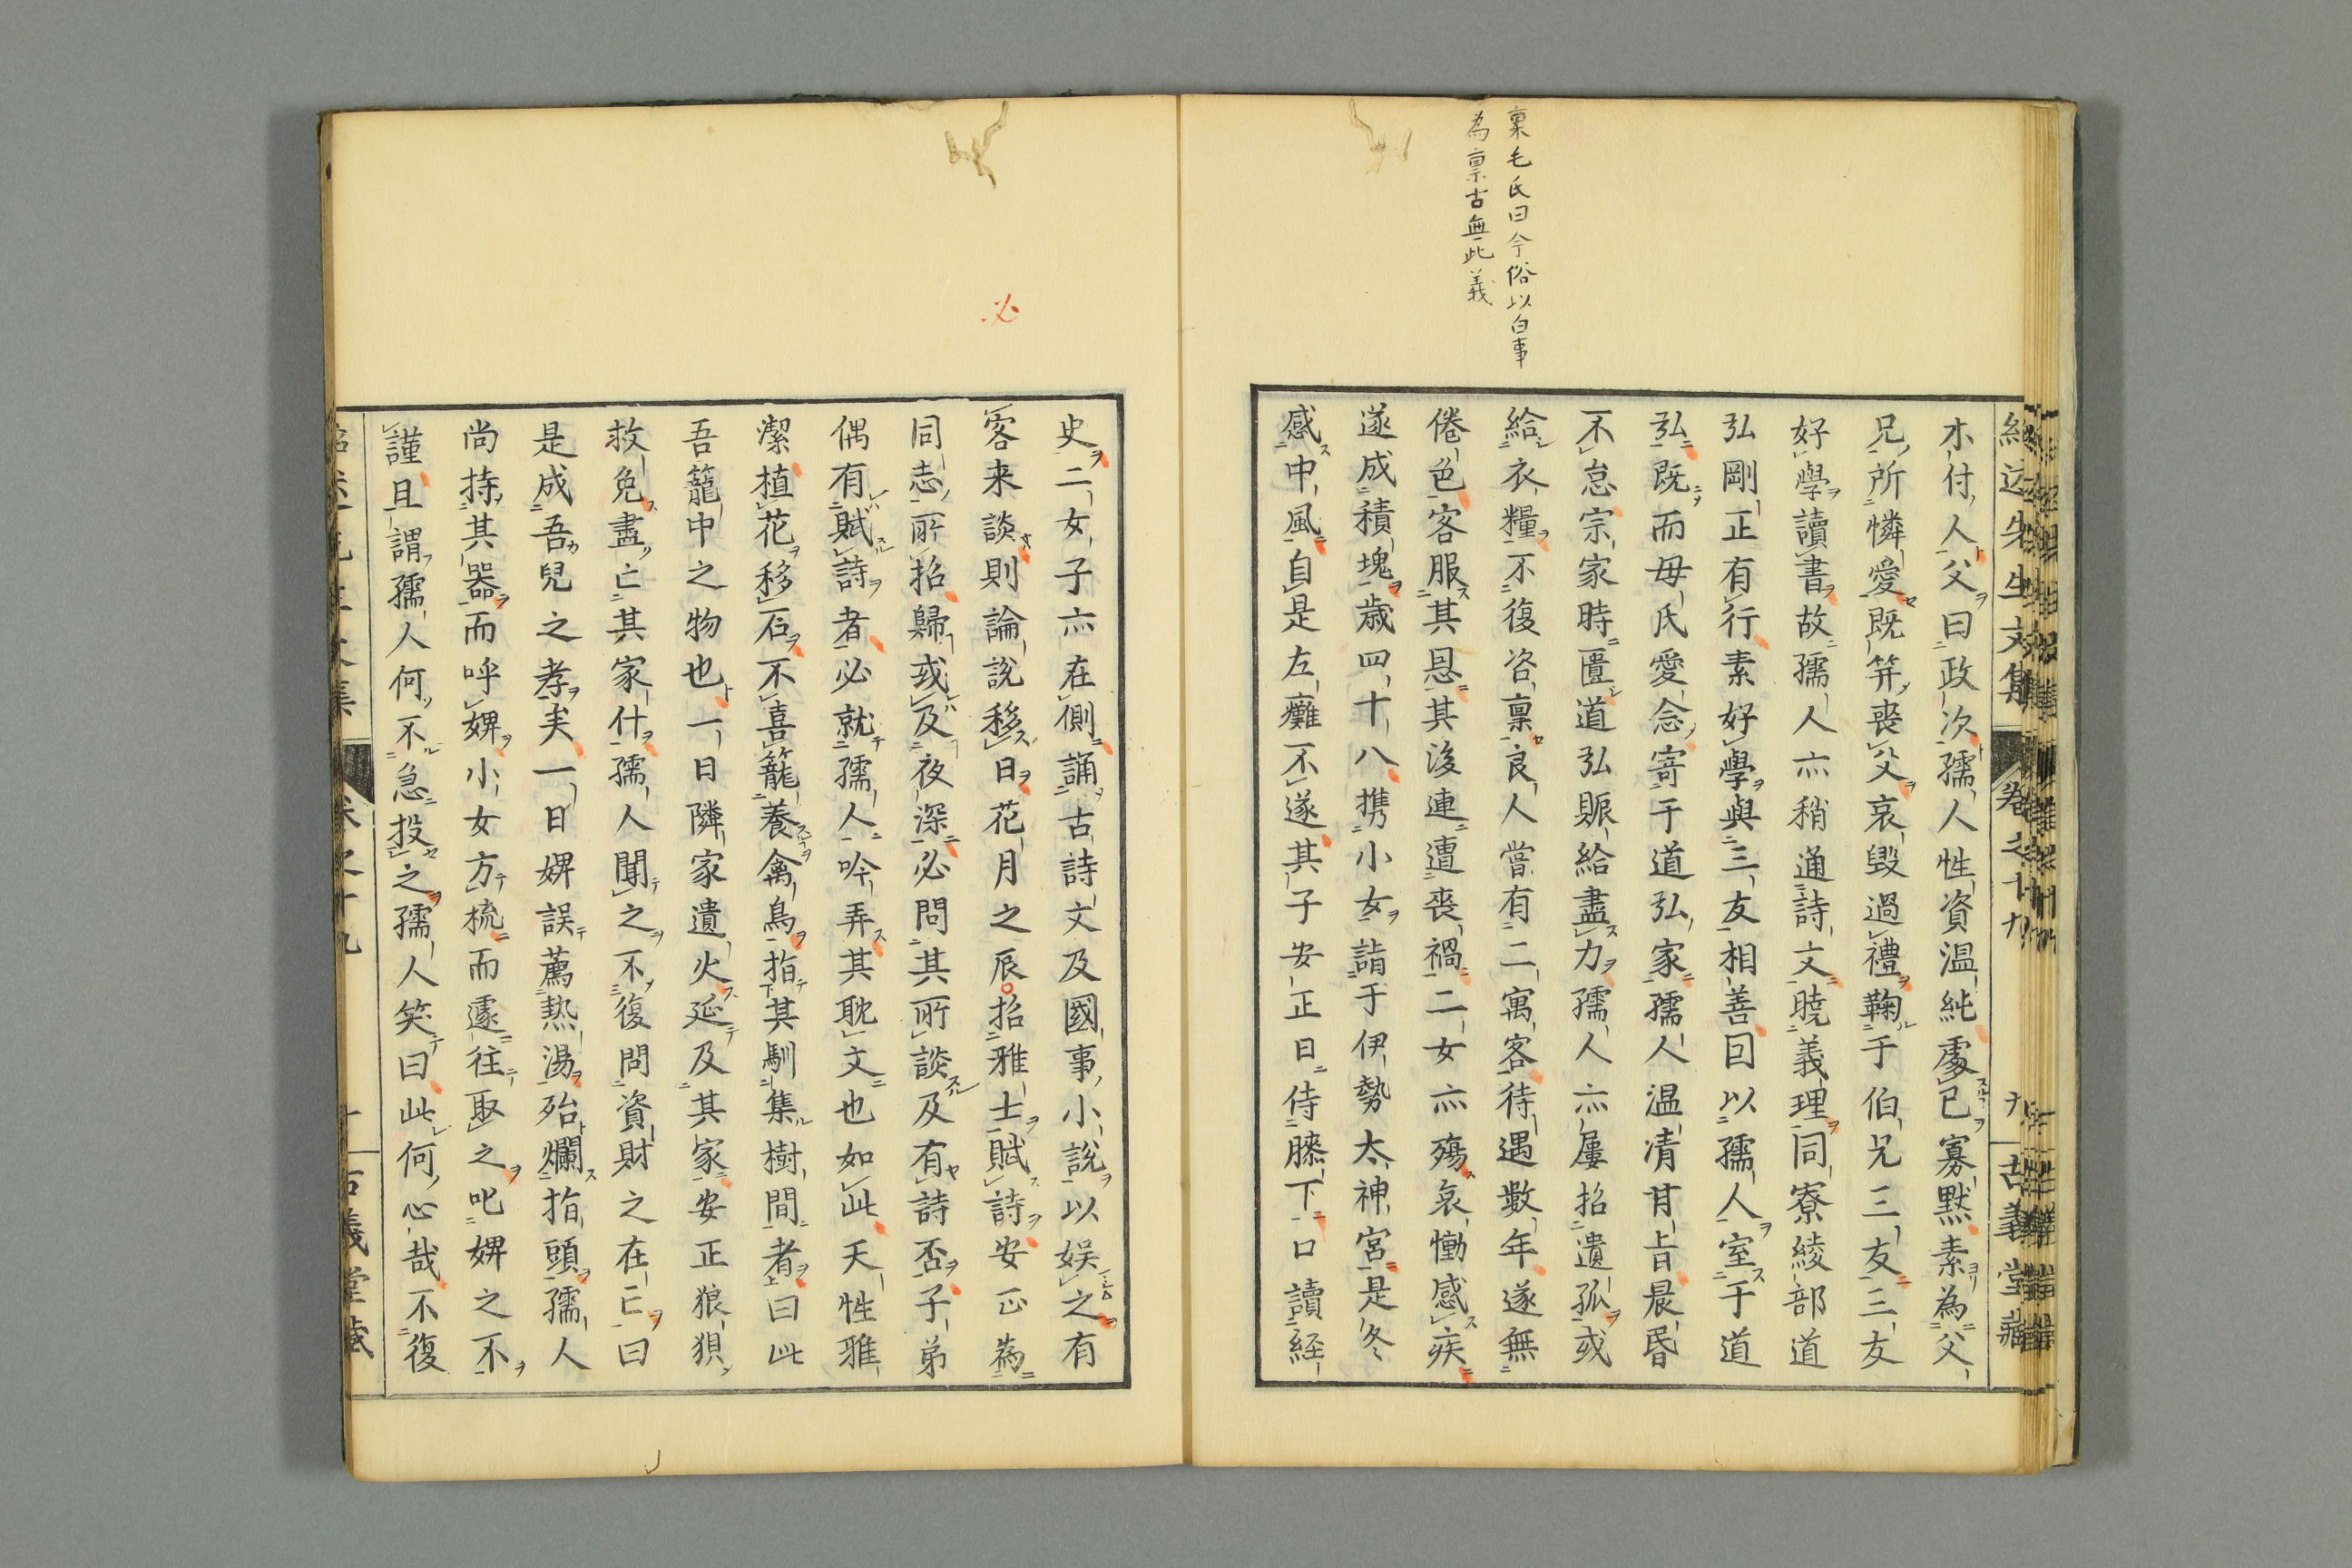 稟毛氏曰今俗以白事
為稟古無此義
紹述先生文集 卷之十九 九 古義堂藏
木付人父曰政次孺人性資温純處已寡默素為父
兄所憐愛既笄喪父哀毀過禮鞠于伯兄三友三友
好學讀書故孺人亦稍通詩文曉義理同寮綾部道
弘剛正有行素好學與三友相善回以孺人室于道
弘既而毋氏愛念寄于道弘家孺人温凊甘旨晨昏
不怠宗家時匱道弘賑給盡力孺人亦屢招遺孤或
給衣糧不復咨稟良人嘗有二寓客待遇數年遂無
倦色客服其恩其後連遭喪禍二女亦殤哀慟感疾
遂成積塊歲四十八携小女詣于伊勢太神宮是冬
感中風自是左癱不遂其子安正日侍膝下口讀経
必
史二女子亦在側誦古詩文及國事小說以娯之有
客来談則論說移日花月之辰招雅士賦詩安正為
同志所招歸或及夜深必問其所談及有詩否子弟
偶有賦詩者必就孺人吟弄其耽文也如此天性雅
潔植花移石不喜籠養禽鳥指其馴集樹間者曰此
吾籠中之物也一日隣家遺火延及其家安正狼狽
救免盡亡其家什孺人聞之不復問資財之在亡曰
是成吾兒之孝矣一日婢誤薦熱湯殆爛指頭孺人
尚持其器而呼婢小女方梳而遽往取之叱婢之不
謹且謂孺人何不急投之孺人笑曰此何心哉不復